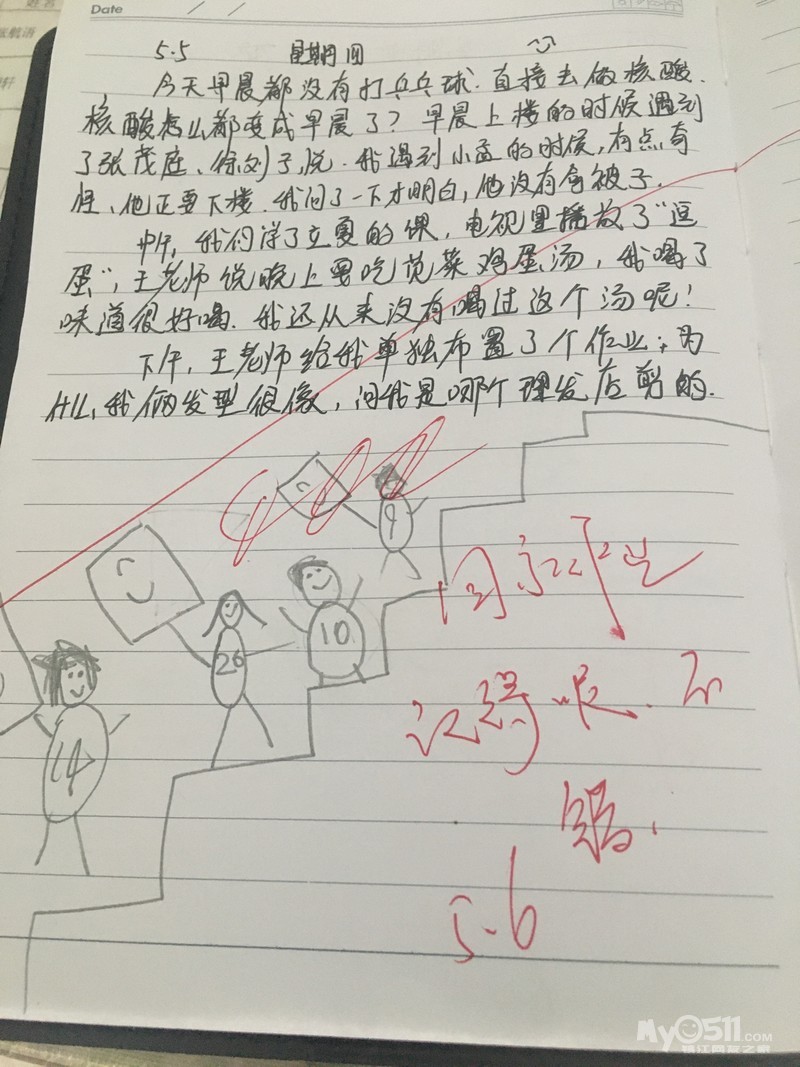 Date / /
5.5 星期四
今天早晨都没有打乒乓球.直接去做核酸.
核酸怎么都变成早晨了?早晨上楼的时候遇到
了张茂庭、徐刘子悦.我遇到小孟的时候,有点奇
怪、他正要下楼.我问了一下才明白,他没有拿被子.
中午,我们学了立夏的课,电视里播放了“逗
蛋”,王老师说晚上要吃苋菜鸡蛋汤,我喝了
味道很好喝.我还从来没有喝过这个汤呢!
下午,王老师给我单独布置了个作业;为
我俩发型很像,问我是哪个理发店剪的.
9
10
26
14
记得呢.不
错.
5.6
My0511.COM